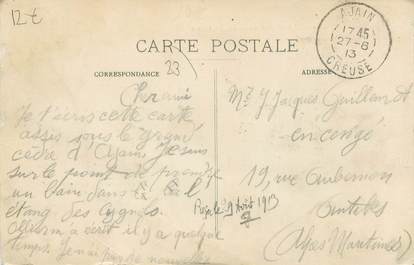 12€
AJAIN
17 45
27-8
13
CREUSE
CARTE POSTALE
CORRESPONDANCE
ADRESSE
23
Cher ami
Je t'écris cette carte
assis sous le grand
cèdre d'Ajain, Je suis
sur le point de prendre
un bain dans
étang des
a écrit il y a quelque
temps. Je n'ai pas de nouvelles
Mr J Jacques Guillandt
en congé
19, rue Aubernon
Antibes
(Alpes Maritimes)
Rep le 9 Août 1913